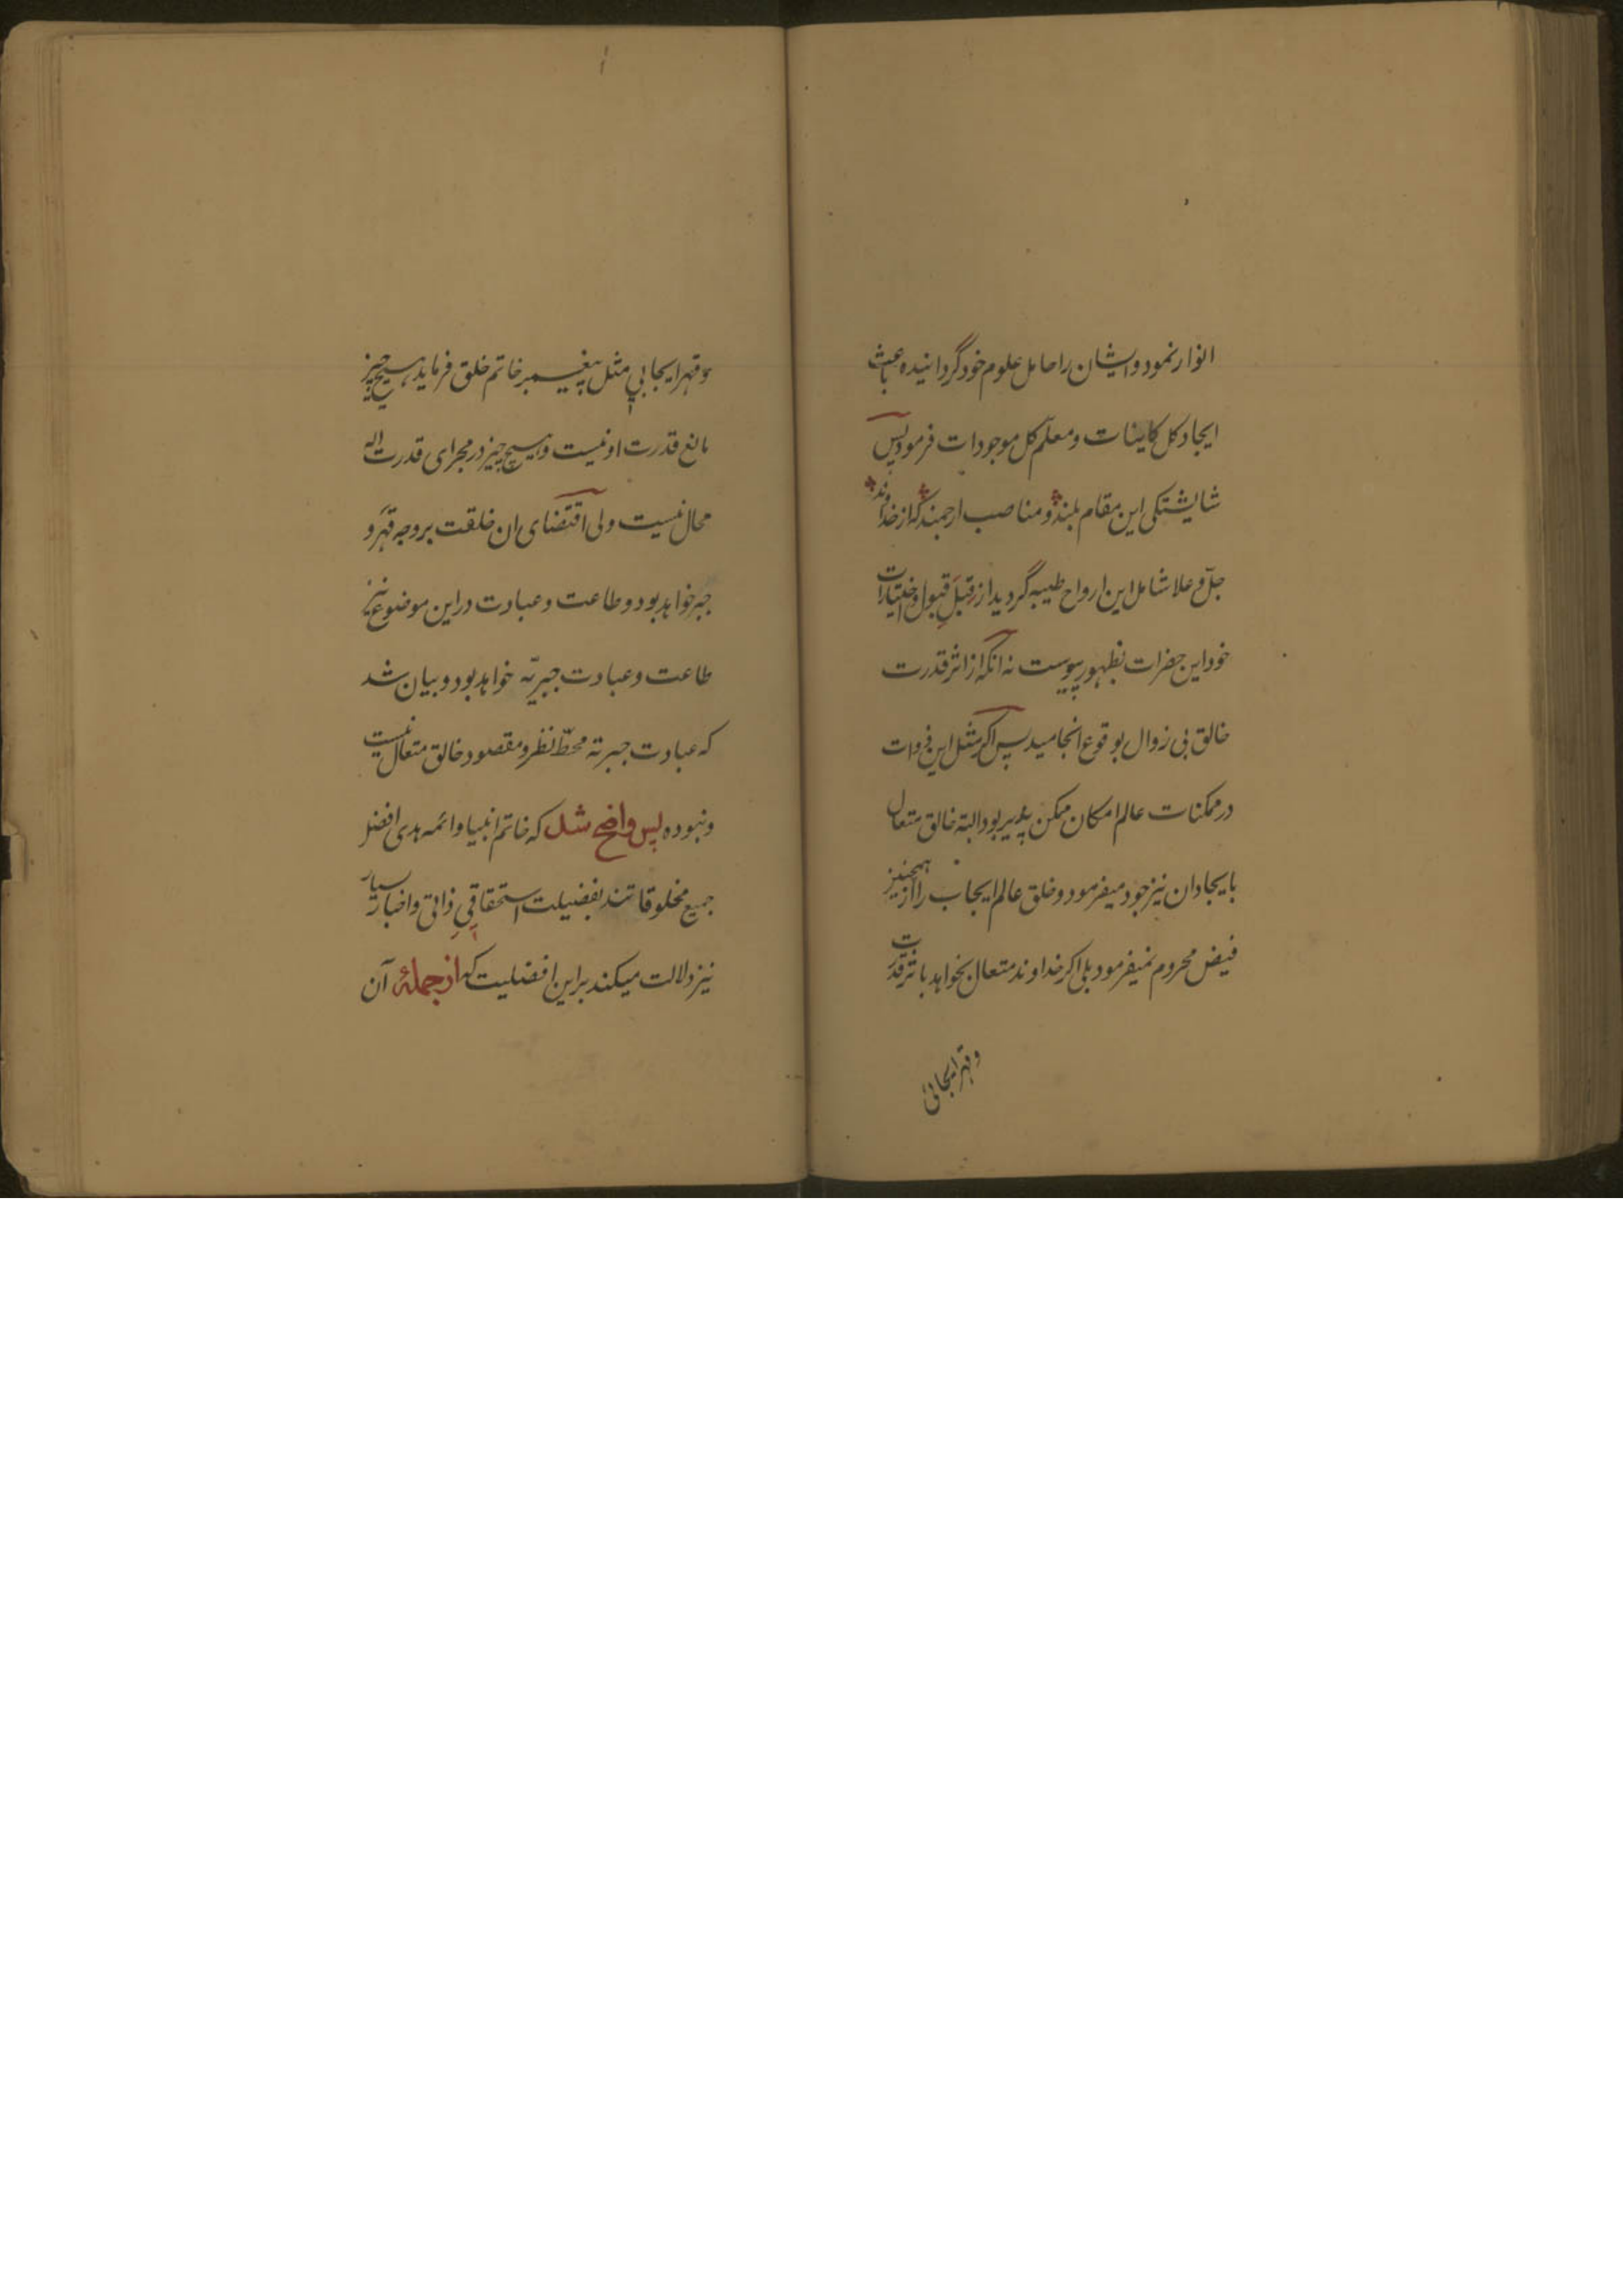 انوار نمود و ایشان را حامل علوم خود گردانیده باعث
ایجاد کل کاینات و معلّم کل موجودات فرمود پس
شایشتکی این مقام بلند و مناصب ارجمند که از خداوند
جلّ و علا شامل این ارواح طیبه گردید از قبَلِ قبول و اختیارات
خود این حضرات بظهور پیوست نه انکه از اثر قدرت
خالق بی زوال بوقوع انجامید پس اکر مثل این ذوات
در ممکنات عالم امکان ممکن پذیر بود البته خالق متعال
بایجاد ان نیز جود میفرمود و خلق عالم ایجاب را از همچنیز
فیض محروم نمیفرمود بلی اکر خداوند متعال بخواهد باثر قدرت
و قهر ایجابی
و قهر ایجابی مثل پیغیمبر خاتم خلق فرماید هیچ چیز
مانع قدرت او نیست و هیچ چیز در مجرای قدرت اله
محال نیست ولی اقتضای ان خلقت بر وجه قهر و
جبر خواهد بود و طاعت و عبادت در این موضوع نیز
طاعت و عبادت جبریّه خواهد بود و بیان شد
که عبادت جبریّه محطّ نظر و مقصود خالق متعال نیست
و نبوده پس واضح شد که خاتم انبیا و ائمه هدی افضل
جمیع مخلوقاتند بفضیلت استحقاقیِ ذاتی و اخبار بسیار
نیز دلالت میکند براین افضلیت که از جملهٔ آن